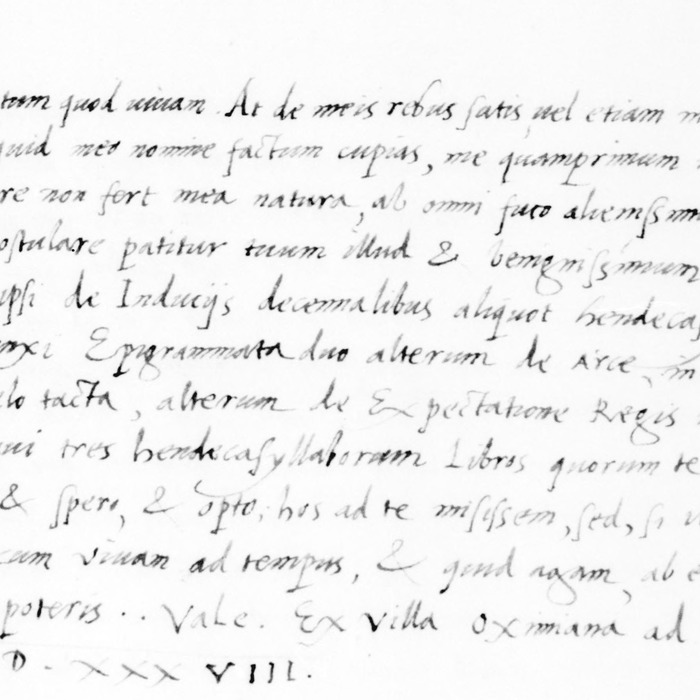 tum quod uiuam. At de meis rebus satis, uel etiam
quid meo nomine factum cupias, me quamprimum
re non fert mea natura, ab omni fuco alienissm
ostulare patitur tuum illud & benignissimum
ipsi de Inducijs decennalibus aliquot hendecas
nxi Epigrammata duo alterum de Arce, in
lo tacta, alterum de Expectatione Regis
ui tres hendecasyllaborum Libros quorum te
& spero, & opto; hos ad te misissem, sed, si
cum uiuam ad tempus, & quid agam, ab
poteris.. Vale. Ex Villa Oximiana ad
D. XXXVIII.